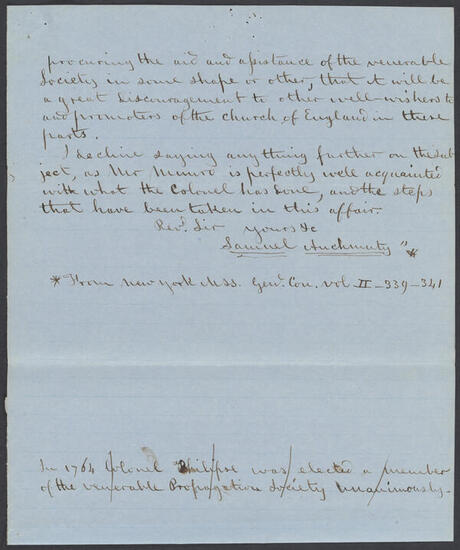 procuring the aid and assistance of the venerable
Society in some shape or other, that it will be
a great discouragement to other well-wishers to
and promoters of the church of England in these
parts.
I decline saying anything further on the sub
ject, as Mr Munro is perfectly well acquainted
with what the Colonel has done, and the steps
that have been taken in this affair.
Revd. Sir yours &c
Samuel Auchmuty" *
* From New York Mss. Genl. Con. vol II - 339 - 341
In 1764 Colonel Philipse was elected a member
of the venerable Propagation Society unanimously.